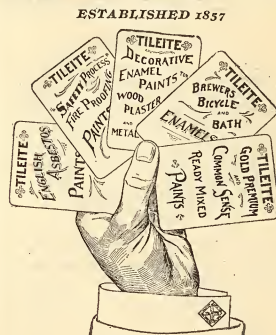 ESTABLISHED 1857
TILEITE
ENGLISH
ASBESTOS
PAINTS
TILEITE
SAFETY PROCESS
FIRE PROOFING
PAINTS
TILEITE
DECORATIVE
ENAMEL
PAINTS TO
WOOD
PLASTER
AND
METAL
TILEITE
BREWERS
BICYCLE
AND
BATH
ENAMELS
TILEITE
GOLD PREMIUM
AND
COMMON SENSE
READY MIXED
PAINTS